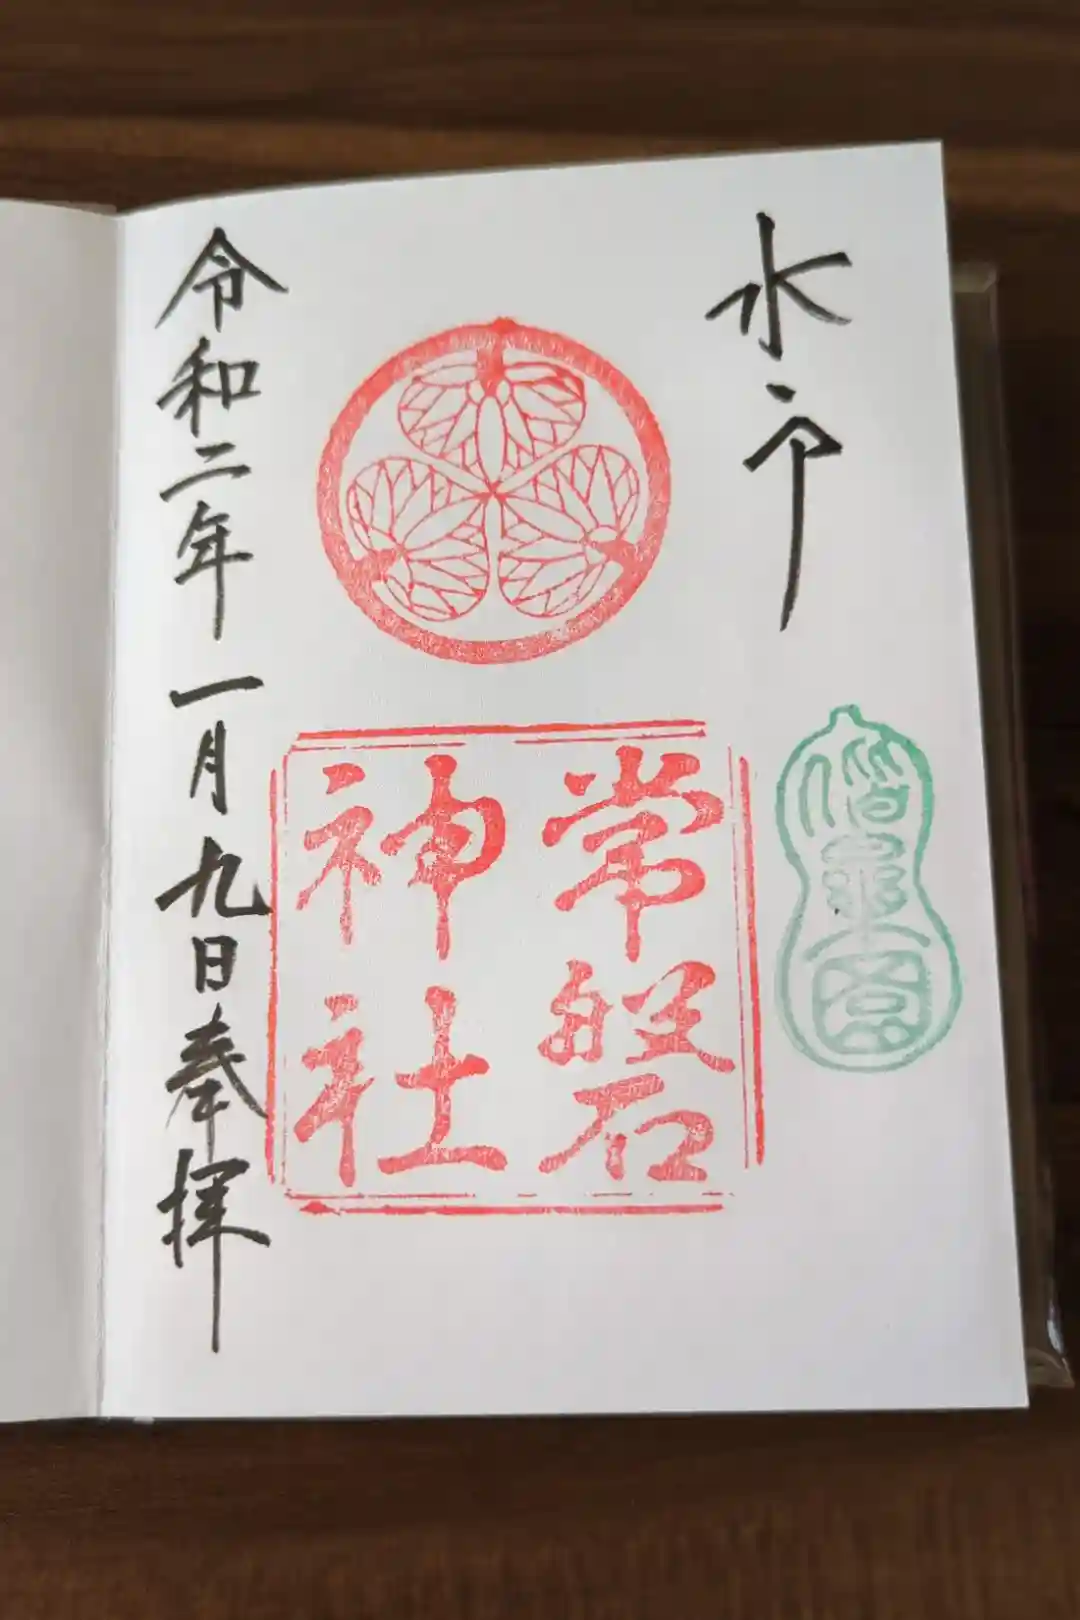 水戸
偕楽園
常磐
神社
令和二年一月九日奉拝